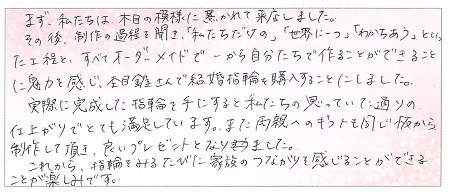 まず、私たちは木目の模様に惹かれて来店しました。
その後、制作の過程を聞き、「私たちだけの」「世界に一つ」「わかちあう」といっ
た工程と、すべてオーダーメイドで一から自分たちで作ることができること
に魅力を感じ、杢目金屋さんで結婚指輪を購入することにしました。
実際に完成した指輪を手にすると私たちの思っていた通りの
仕上がりでとても満足しています。また両親へのギフトも同じ板から
制作して頂き、良いプレゼントとなりました。
これから、指輪をみるたびに家族のつながりを感じることができる
ことが楽しみです。